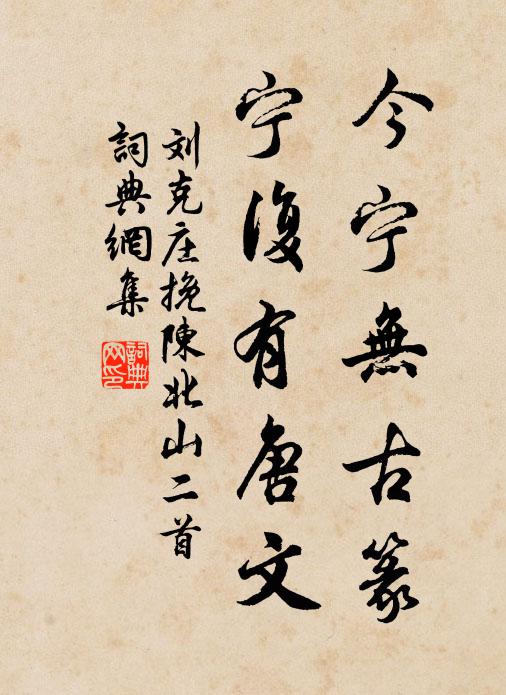 今宁無古篆
宁復有唐文
刘克庄挽陳北山二首
詞典網集
詞典网印